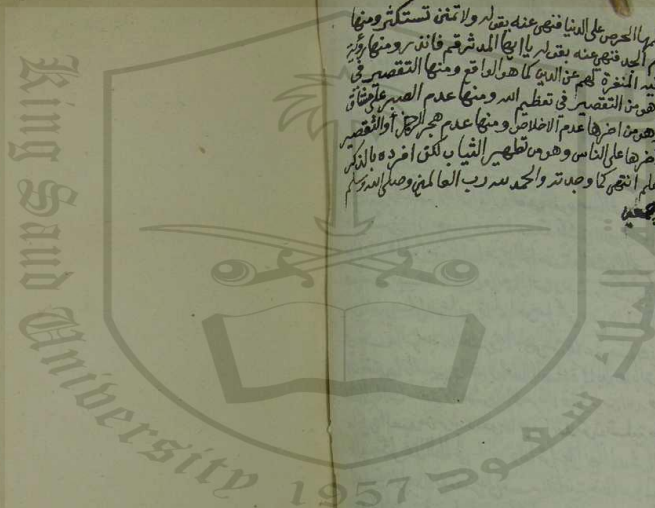 منها الحرص على الدنيا فنهى عنه بقوله ولا تمنن تستكثر ومنها
الحد فنهى عنه بقوله يا ايها المدثر قم فانذر ومنها رؤية
المنفرة لهم عن الدين كما هو الواقع ومنها التقصير في
وهو من التقصير في تعظيم الله ومنها عدم الصبر على مشاق
وهو من اضرها عدم الاخلاص ومنها عدم هجر الرجز أو التقصير
اضرها على الناس وهو من تطهير الثياب لكن افرده بالذكر
علم انتهى كما وجدته والحمد لله رب العالمين وصلى الله وسلم
اجمعين
King Saud University
1957